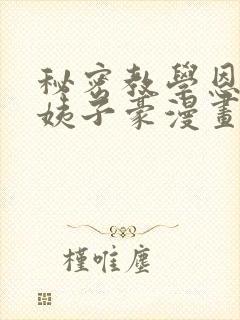 秘密教學恩
姨子豪漫畫
槿唯塵